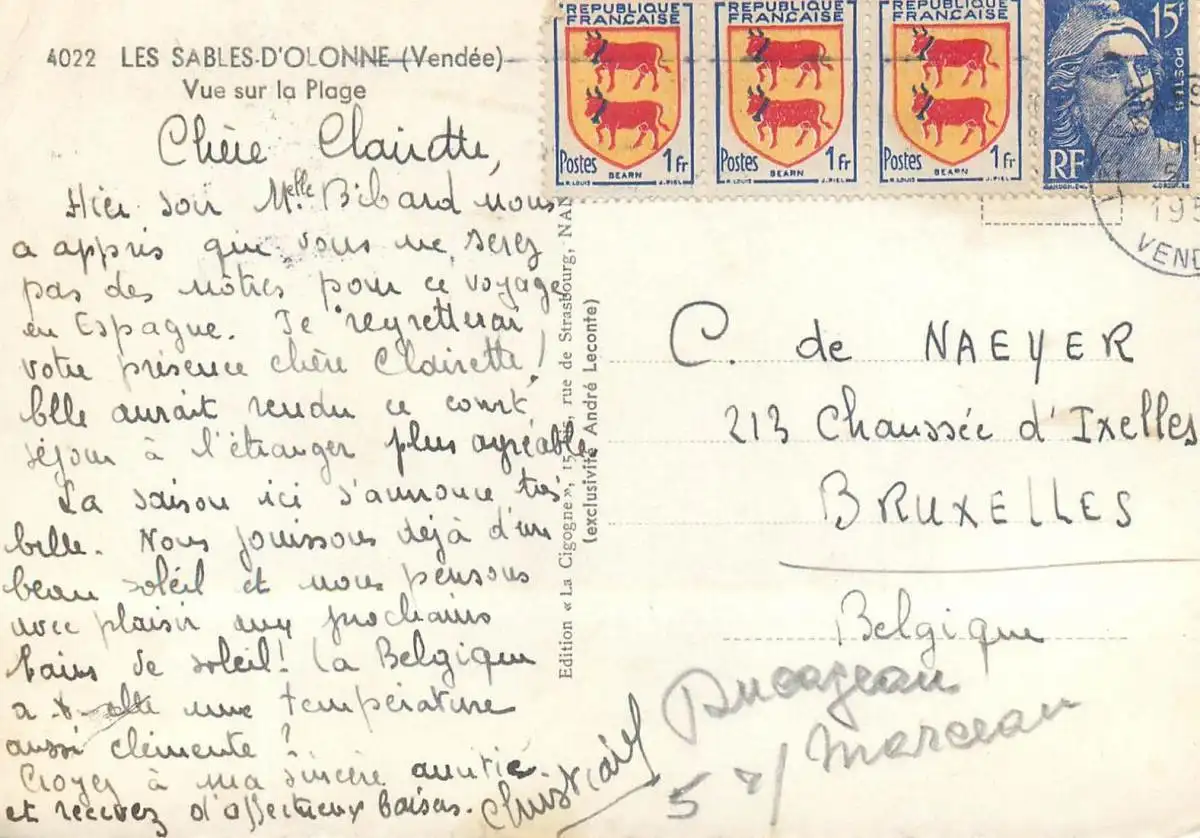 4022 LES SABLES-D'OLONNE (Vendée)
Vue sur la Plage
Chère Clairette,
Hier soir Melle Bibard nous
a appris que vous ne serez
pas des nôtres pour ce voyage
en Espagne. Je regretterai
votre présence chère Clairette!
Elle aurait rendu ce court
séjour à l'étranger plus agréable
La saison ici s'annonce très
belle. Nous jouissons déjà d'un
beau soleil et nous pensons
avec plaisir aux prochains
bains de soleil! La Belgique
a-t-elle une température
aussi clémente?
Croyez à ma sincère amitié
et recevez d'affectueux baisers.
Edition « La Cigogne », 15, rue de Strasbourg, NAN
(exclusivité André Leconte)
REPUBLIQUE FRANÇAISE
Postes 1Fr
BEARN
R. LOUIS J. PIEL
REPUBLIQUE FRANÇAISE
Postes 1Fr
BEARN
R. LOUIS J. PIEL
REPUBLIQUE FRANÇAISE
Postes 1Fr
BEARN
R. LOUIS J. PIEL
15F
POSTES
RF
GANDON
19
VEND
C. de NAEYER
213 Chaussée d'Ixelles
BRUXELLES
Belgique
Ducazeau
Marceau